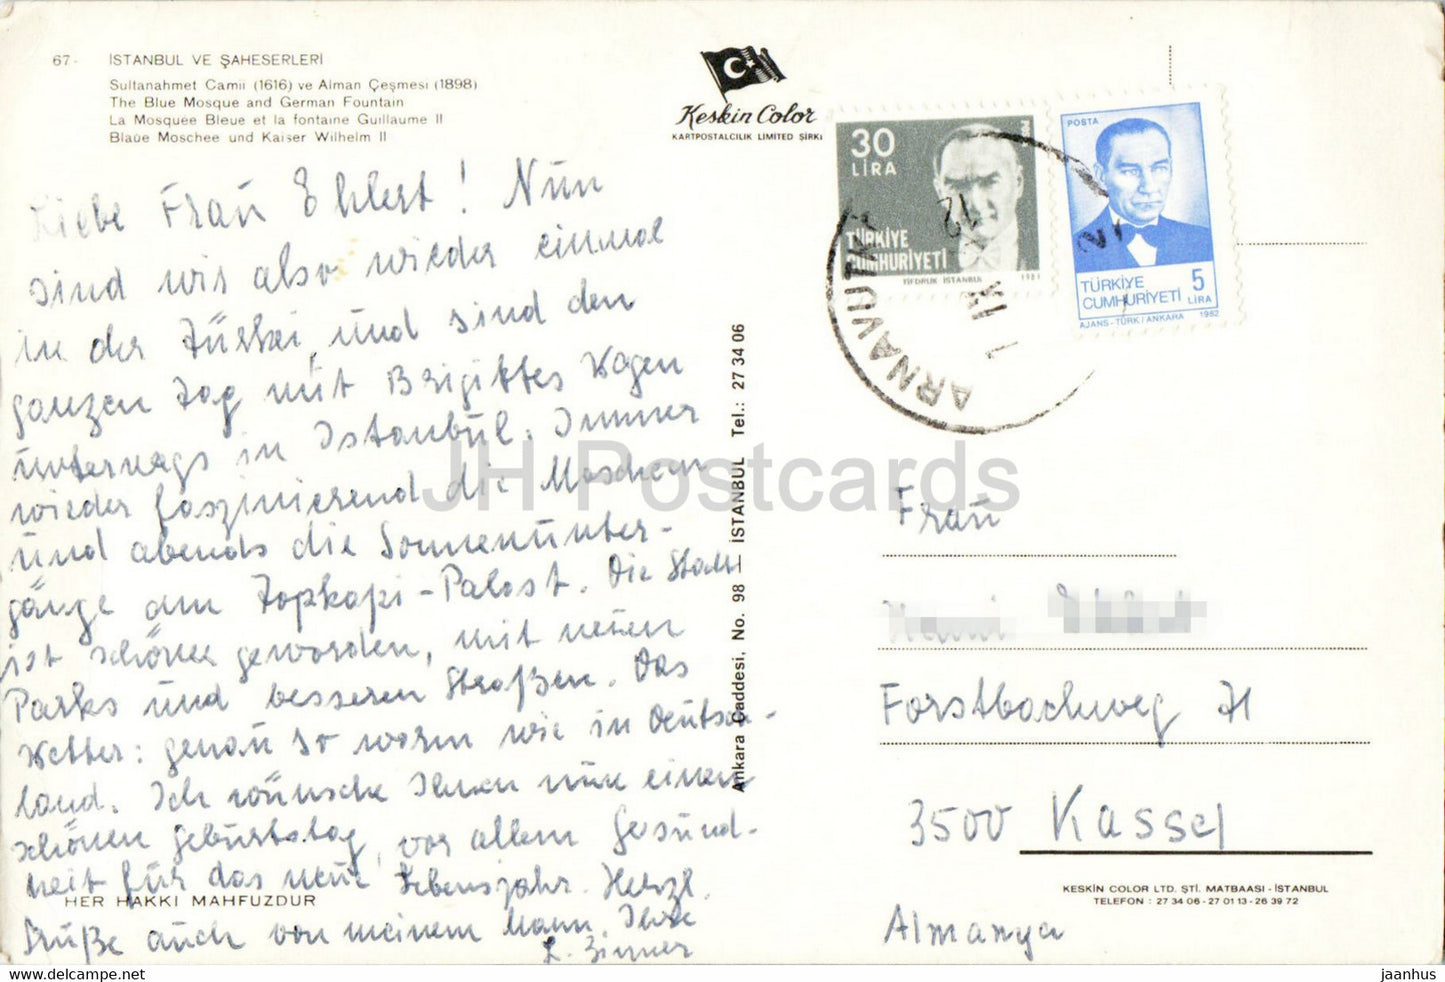 67- İSTANBUL VE ŞAHESERLERİ
Sultanahmet Camii (1616) ve Alman Çeşmesi (1898)
The Blue Mosque and German Fountain
La Mosquée Bleue et la fontaine Guillaume II
Blaue Moschee und Kaiser Wilhelm II
Keskin Color
KARTPOSTALCILIK LIMITED ŞİRKI
30
LİRA
TÜRKİYE
CUMHURİYETİ
TİFDRUK İSTANBUL 1981
POSTA
TÜRKİYE 5
CUMHURİYETİ LİRA
AJANS-TÜRK/ANKARA 1982
ARNAVUTKÖ
12
Liebe Frau Ehlert! Nun
sind wir also wieder einmal
in der Türkei und sind den
ganzen Tag mit Brigittes Wagen
unterwegs in Istanbul. Immer
wieder faszinierend die Moscheen
und abends die Sonnenunter-
gänge am Topkapi-Palast. Die Stadt
ist schöner geworden, mit neuen
Parks und besseren Straßen. Das
Wetter: genau so warm wie in Deutsch-
land. Ich wünsche Ihnen nun einen
schönen Geburtstag, vor allem Gesund-
heit für das neue Lebensjahr. Herzl.
Grüße auch von meinem Mann. Ihre
HER HAKKI MAHFUZDUR
Ankara Caddesi, No. 98 — İSTANBUL Tel.: 27 34 06
JH Postcards
Frau
Forstbachweg 71
3500 Kassel
Almanya
KESKİN COLOR LTD. ŞTİ. MATBAASI - İSTANBUL
TELEFON : 27 34 06 - 27 01 13 - 26 39 72
67-netkaart.jpg
jaanhus